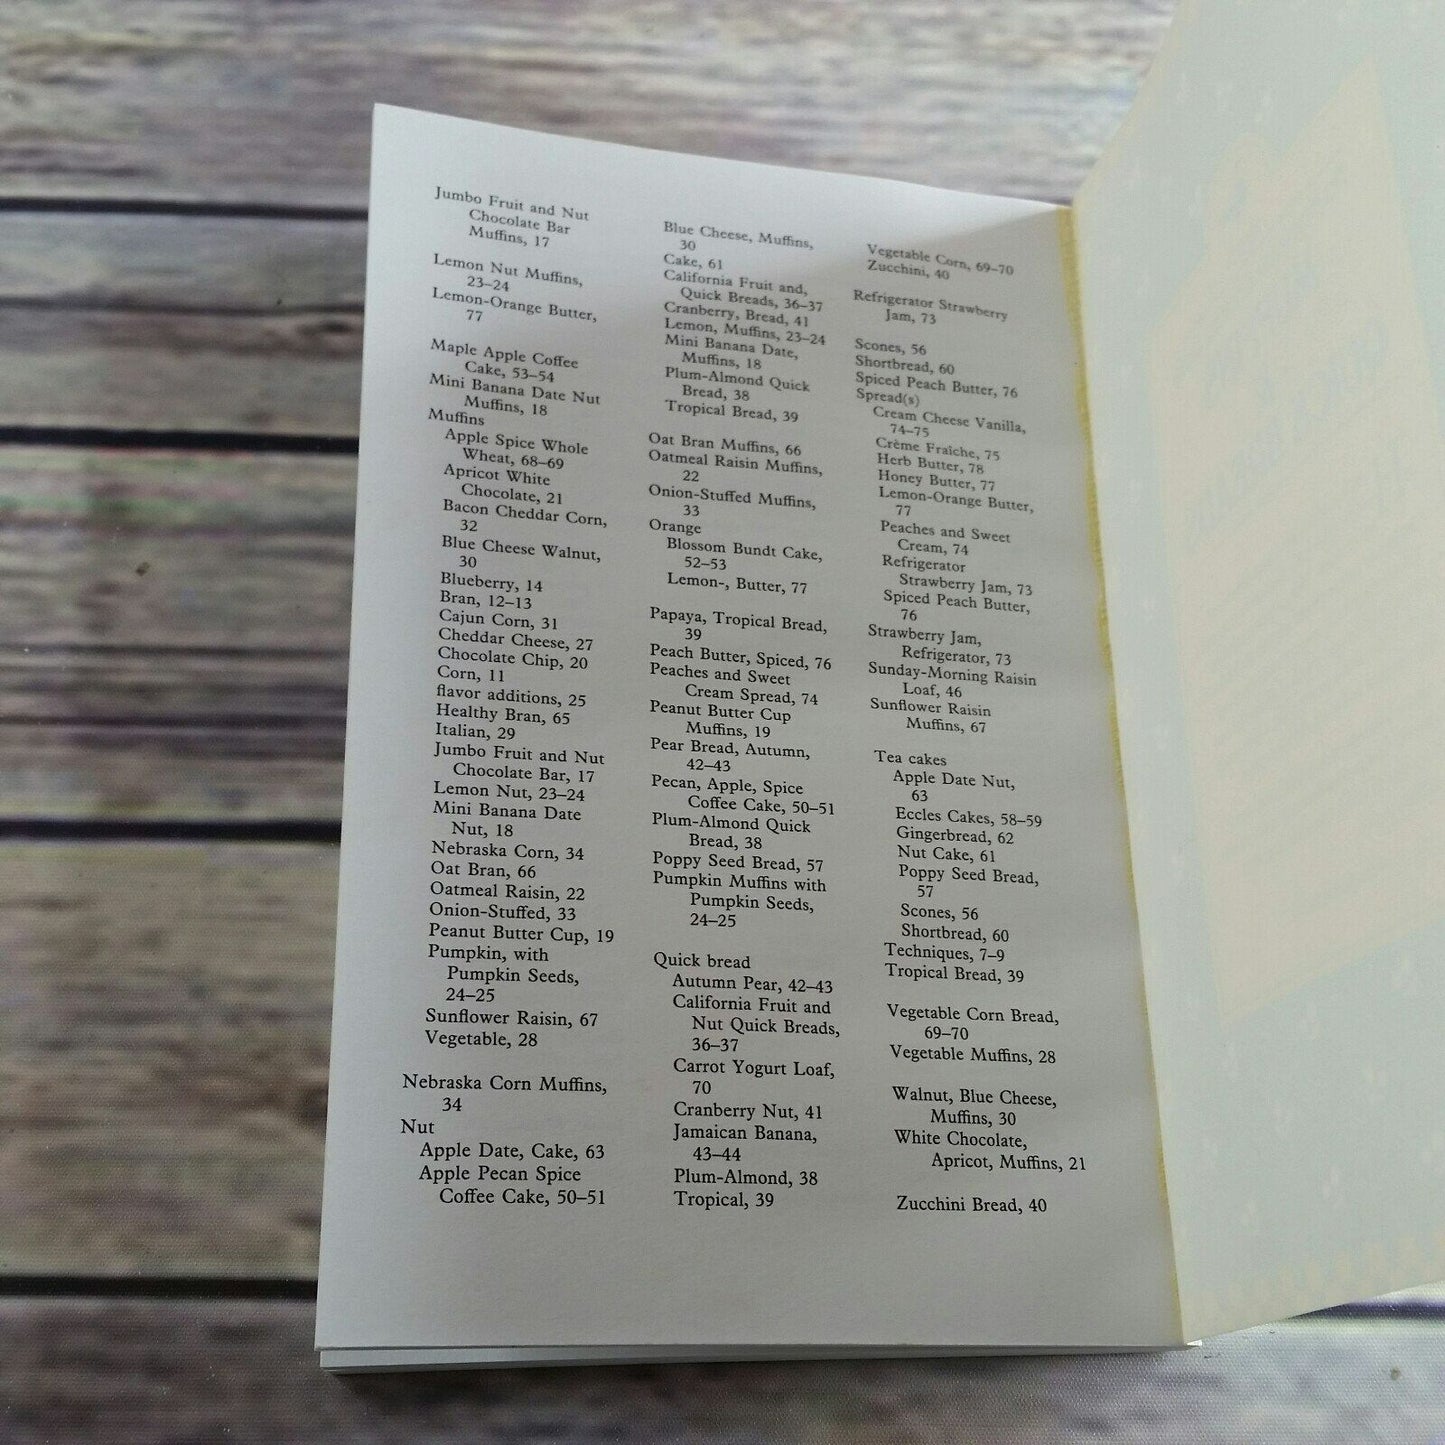 Jumbo Fruit and Nut
Chocolate Bar
Muffins, 17
Lemon Nut Muffins,
23–24
Lemon-Orange Butter,
77
Maple Apple Coffee
Cake, 53–54
Mini Banana Date Nut
Muffins, 18
Muffins
Apple Spice Whole
Wheat, 68–69
Apricot White
Chocolate, 21
Bacon Cheddar Corn,
32
Blue Cheese Walnut,
30
Blueberry, 14
Bran, 12–13
Cajun Corn, 31
Cheddar Cheese, 27
Chocolate Chip, 20
Corn, 11
flavor additions, 25
Healthy Bran, 65
Italian, 29
Jumbo Fruit and Nut
Chocolate Bar, 17
Lemon Nut, 23–24
Mini Banana Date
Nut, 18
Nebraska Corn, 34
Oat Bran, 66
Oatmeal Raisin, 22
Onion-Stuffed, 33
Peanut Butter Cup, 19
Pumpkin, with
Pumpkin Seeds,
24–25
Sunflower Raisin, 67
Vegetable, 28
Nebraska Corn Muffins,
34
Nut
Apple Date, Cake, 63
Apple Pecan Spice
Coffee Cake, 50–51
Blue Cheese, Muffins,
30
Cake, 61
California Fruit and,
Quick Breads, 36–37
Cranberry, Bread, 41
Lemon, Muffins, 23–24
Mini Banana Date,
Muffins, 18
Plum-Almond Quick
Bread, 38
Tropical Bread, 39
Oat Bran Muffins, 66
Oatmeal Raisin Muffins,
22
Onion-Stuffed Muffins,
33
Orange
Blossom Bundt Cake,
52–53
Lemon-, Butter, 77
Papaya, Tropical Bread,
39
Peach Butter, Spiced, 76
Peaches and Sweet
Cream Spread, 74
Peanut Butter Cup
Muffins, 19
Pear Bread, Autumn,
42–43
Pecan, Apple, Spice
Coffee Cake, 50–51
Plum-Almond Quick
Bread, 38
Poppy Seed Bread, 57
Pumpkin Muffins with
Pumpkin Seeds,
24–25
Quick bread
Autumn Pear, 42–43
California Fruit and
Nut Quick Breads,
36–37
Carrot Yogurt Loaf,
70
Cranberry Nut, 41
Jamaican Banana,
43–44
Plum-Almond, 38
Tropical, 39
Vegetable Corn, 69–70
Zucchini, 40
Refrigerator Strawberry
Jam, 73
Scones, 56
Shortbread, 60
Spiced Peach Butter, 76
Spread(s)
Cream Cheese Vanilla,
74–75
Crème Fraîche, 75
Herb Butter, 78
Honey Butter, 77
Lemon-Orange Butter,
77
Peaches and Sweet
Cream, 74
Refrigerator
Strawberry Jam, 73
Spiced Peach Butter,
76
Strawberry Jam,
Refrigerator, 73
Sunday-Morning Raisin
Loaf, 46
Sunflower Raisin
Muffins, 67
Tea cakes
Apple Date Nut,
63
Eccles Cakes, 58–59
Gingerbread, 62
Nut Cake, 61
Poppy Seed Bread,
57
Scones, 56
Shortbread, 60
Techniques, 7–9
Tropical Bread, 39
Vegetable Corn Bread,
69–70
Vegetable Muffins, 28
Walnut, Blue Cheese,
Muffins, 30
White Chocolate,
Apricot, Muffins, 21
Zucchini Bread, 40